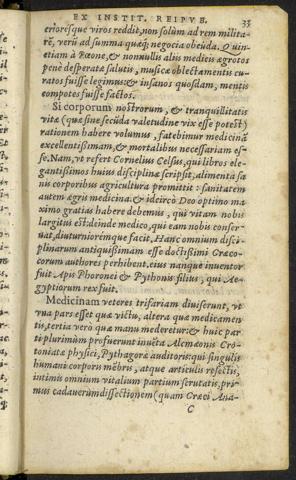 EX INSTIT. REIPVB. 33
erioresque viros reddit, non solùm ad rem milita-
rē, verũ ad summa quæq; negocia obeũda. Quin-
etiam à Pæone, & nonnullis aliis medicis ægrotos
penè desperatæ salutis, musicæ oblectamentis cu-
ratos fuisse legimus: & insanos quosdam, mentis
compotes fuisse factos.
Si corporum nostrorum, & tranquillitatis
vitæ (quæ sine secũda valetudine vix esse potest)
rationem habere volumus, fatebimur medicinã
excellentissimam, & mortalibus necessariam es-
se. Nam, vt refert Cornelius Celsus, qui libros ele-
gantißimos huius disciplinæ scripsit, alimenta sa
nis corporibus agricultura promittit: sanitatem
autem ægris medicina. & idcircò Deo optimo ma
ximo gratias habere debemus, qui vitam nobis
largitus est: deinde medico, qui eam nobis conser-
uat, diuturnioremque facit. Hanc omnium disci-
plinarum antiquißimam esse doctißimi Græco-
corum authores perhibent. eius nanque inuentor
fuit Apis Phoronei & Pythonis filius, qui Ae-
gyptiorum rex fuit.
Medicinam veteres trifariam diuiserunt, vt
vna pars esset quæ victu, altera quæ medicamen
tis, tertia verò quæ manu mederetur: & huic par
ti plurimùm profuerunt inuẽta Alcmæonis Cro-
toniatæ physici, Pythagoræ auditoris: qui singulis
humani corporis mẽbris, atque articulis resectis,
intimis omnium vitalium partium scrutatis, pri-
mus cadauerum dissectionem (quam Græci Ana-
C